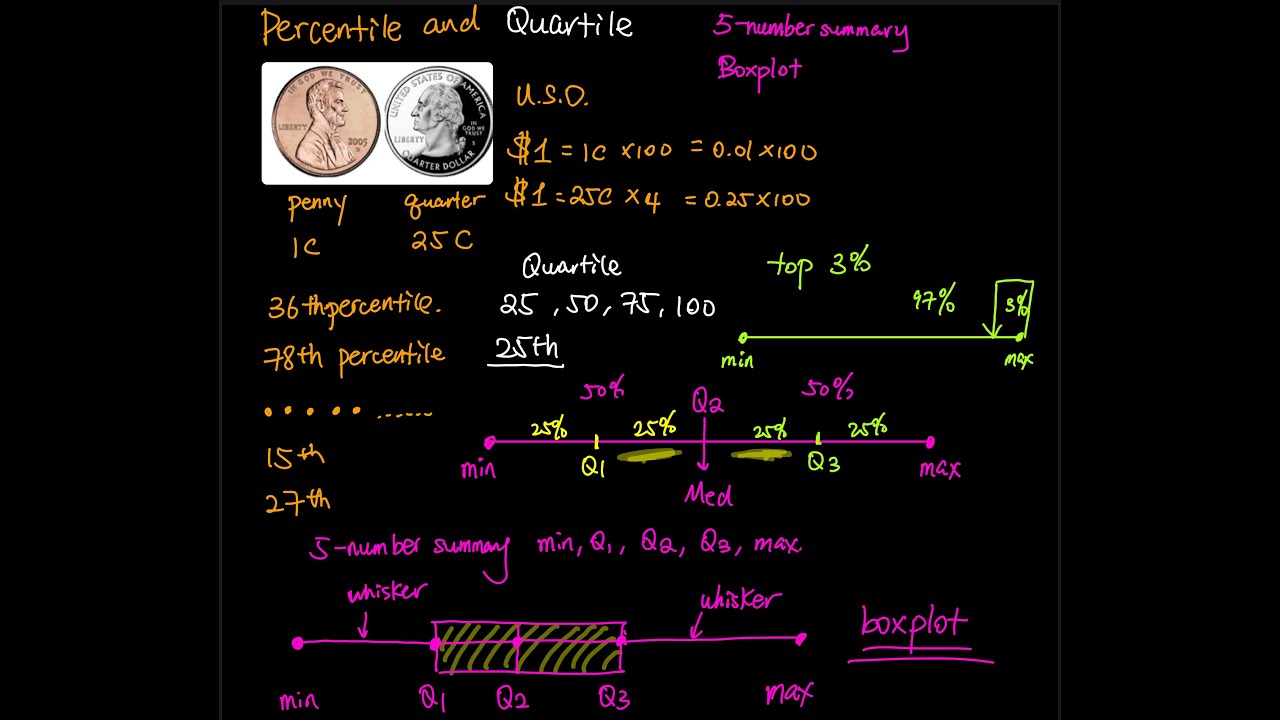 Percentile and Quartile
5-number summary
Boxplot
IN GOD WE TRUST
LIBERTY
2005
D
UNITED STATES OF AMERICA
LIBERTY
IN GOD WE TRUST
S
QUARTER DOLLAR
U.S.D.
$1 = 1C × 100 = 0.01 × 100
$1 = 25C × 4 = 0.25 × 100
penny
quarter
1C
25C
Quartile
25, 50, 75, 100
25th
36th percentile.
78th percentile
15th
27th
top 3%
97%
3%
min
max
50%
Q2
50%
25%
25%
25%
25%
min
Q1
Q3
max
Med
5-number summary min, Q1, Q2, Q3, max
whisker
whisker
boxplot
min
Q1
Q2
Q3
max